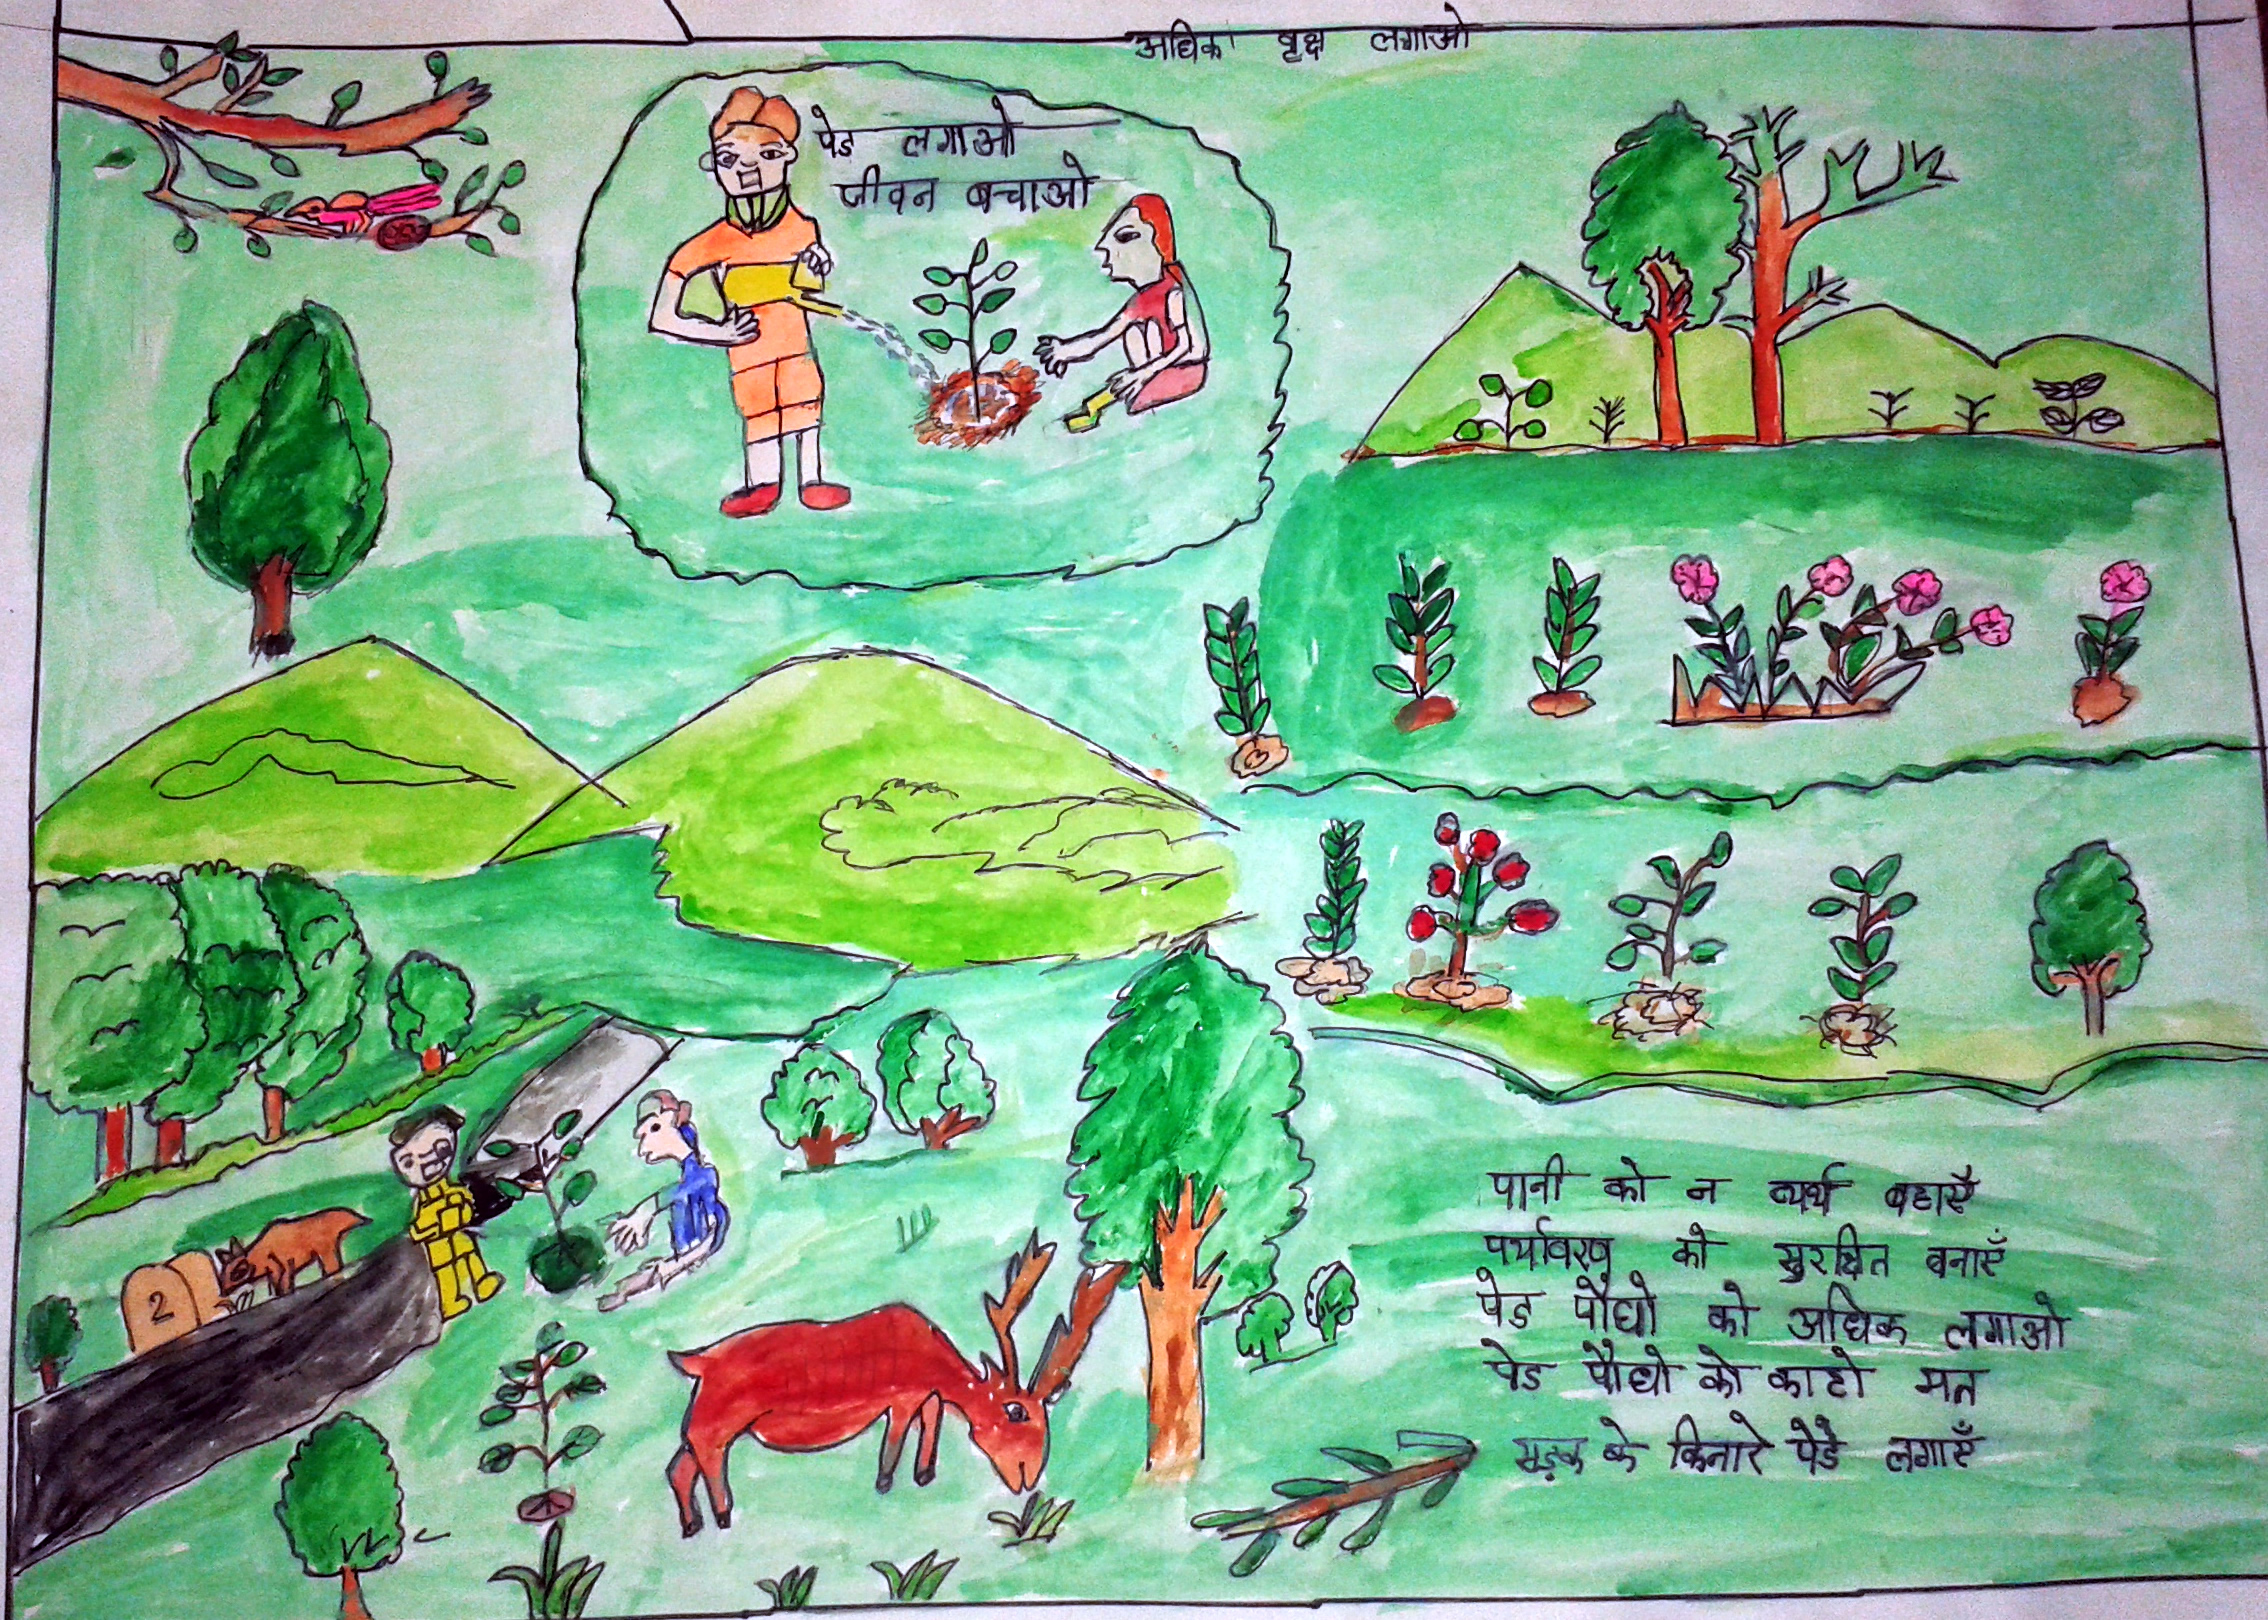 अधिक वृक्ष लगाओ
पेड लगाओ
जीवन बचाओ
2
पानी को न व्यर्थ बहाएँ
पर्यावरण को सुरक्षित बनाएँ
पेड पौधो को अधिक लगाओ
पेड पौधो को काटो मत
सड़क के किनारे पेडै लगाएँ